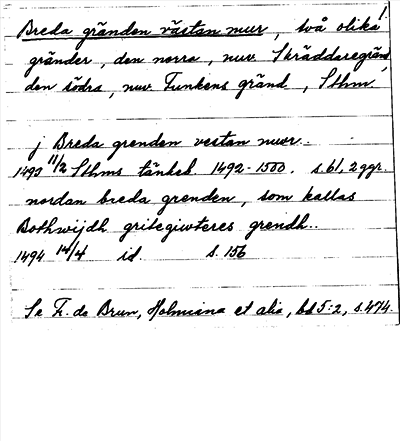 Breda gränden västan mur, två olika!
gränder, den norra, nuv. Skräddaregränd,
den södra, nuv. Funkens gränd, Sthm.
j Breda grenden vestan mur..
1493 11/2 Sthms tänkeb. 1492-1500. s. 61, 2 ggr.
nordan breda grenden, som kallas
Bothwijdh gritegiwteres grendh..
1494 14/4 id. s. 156
Se F. de Brun, Holmiana et alia, bd 5:2, s. 474.